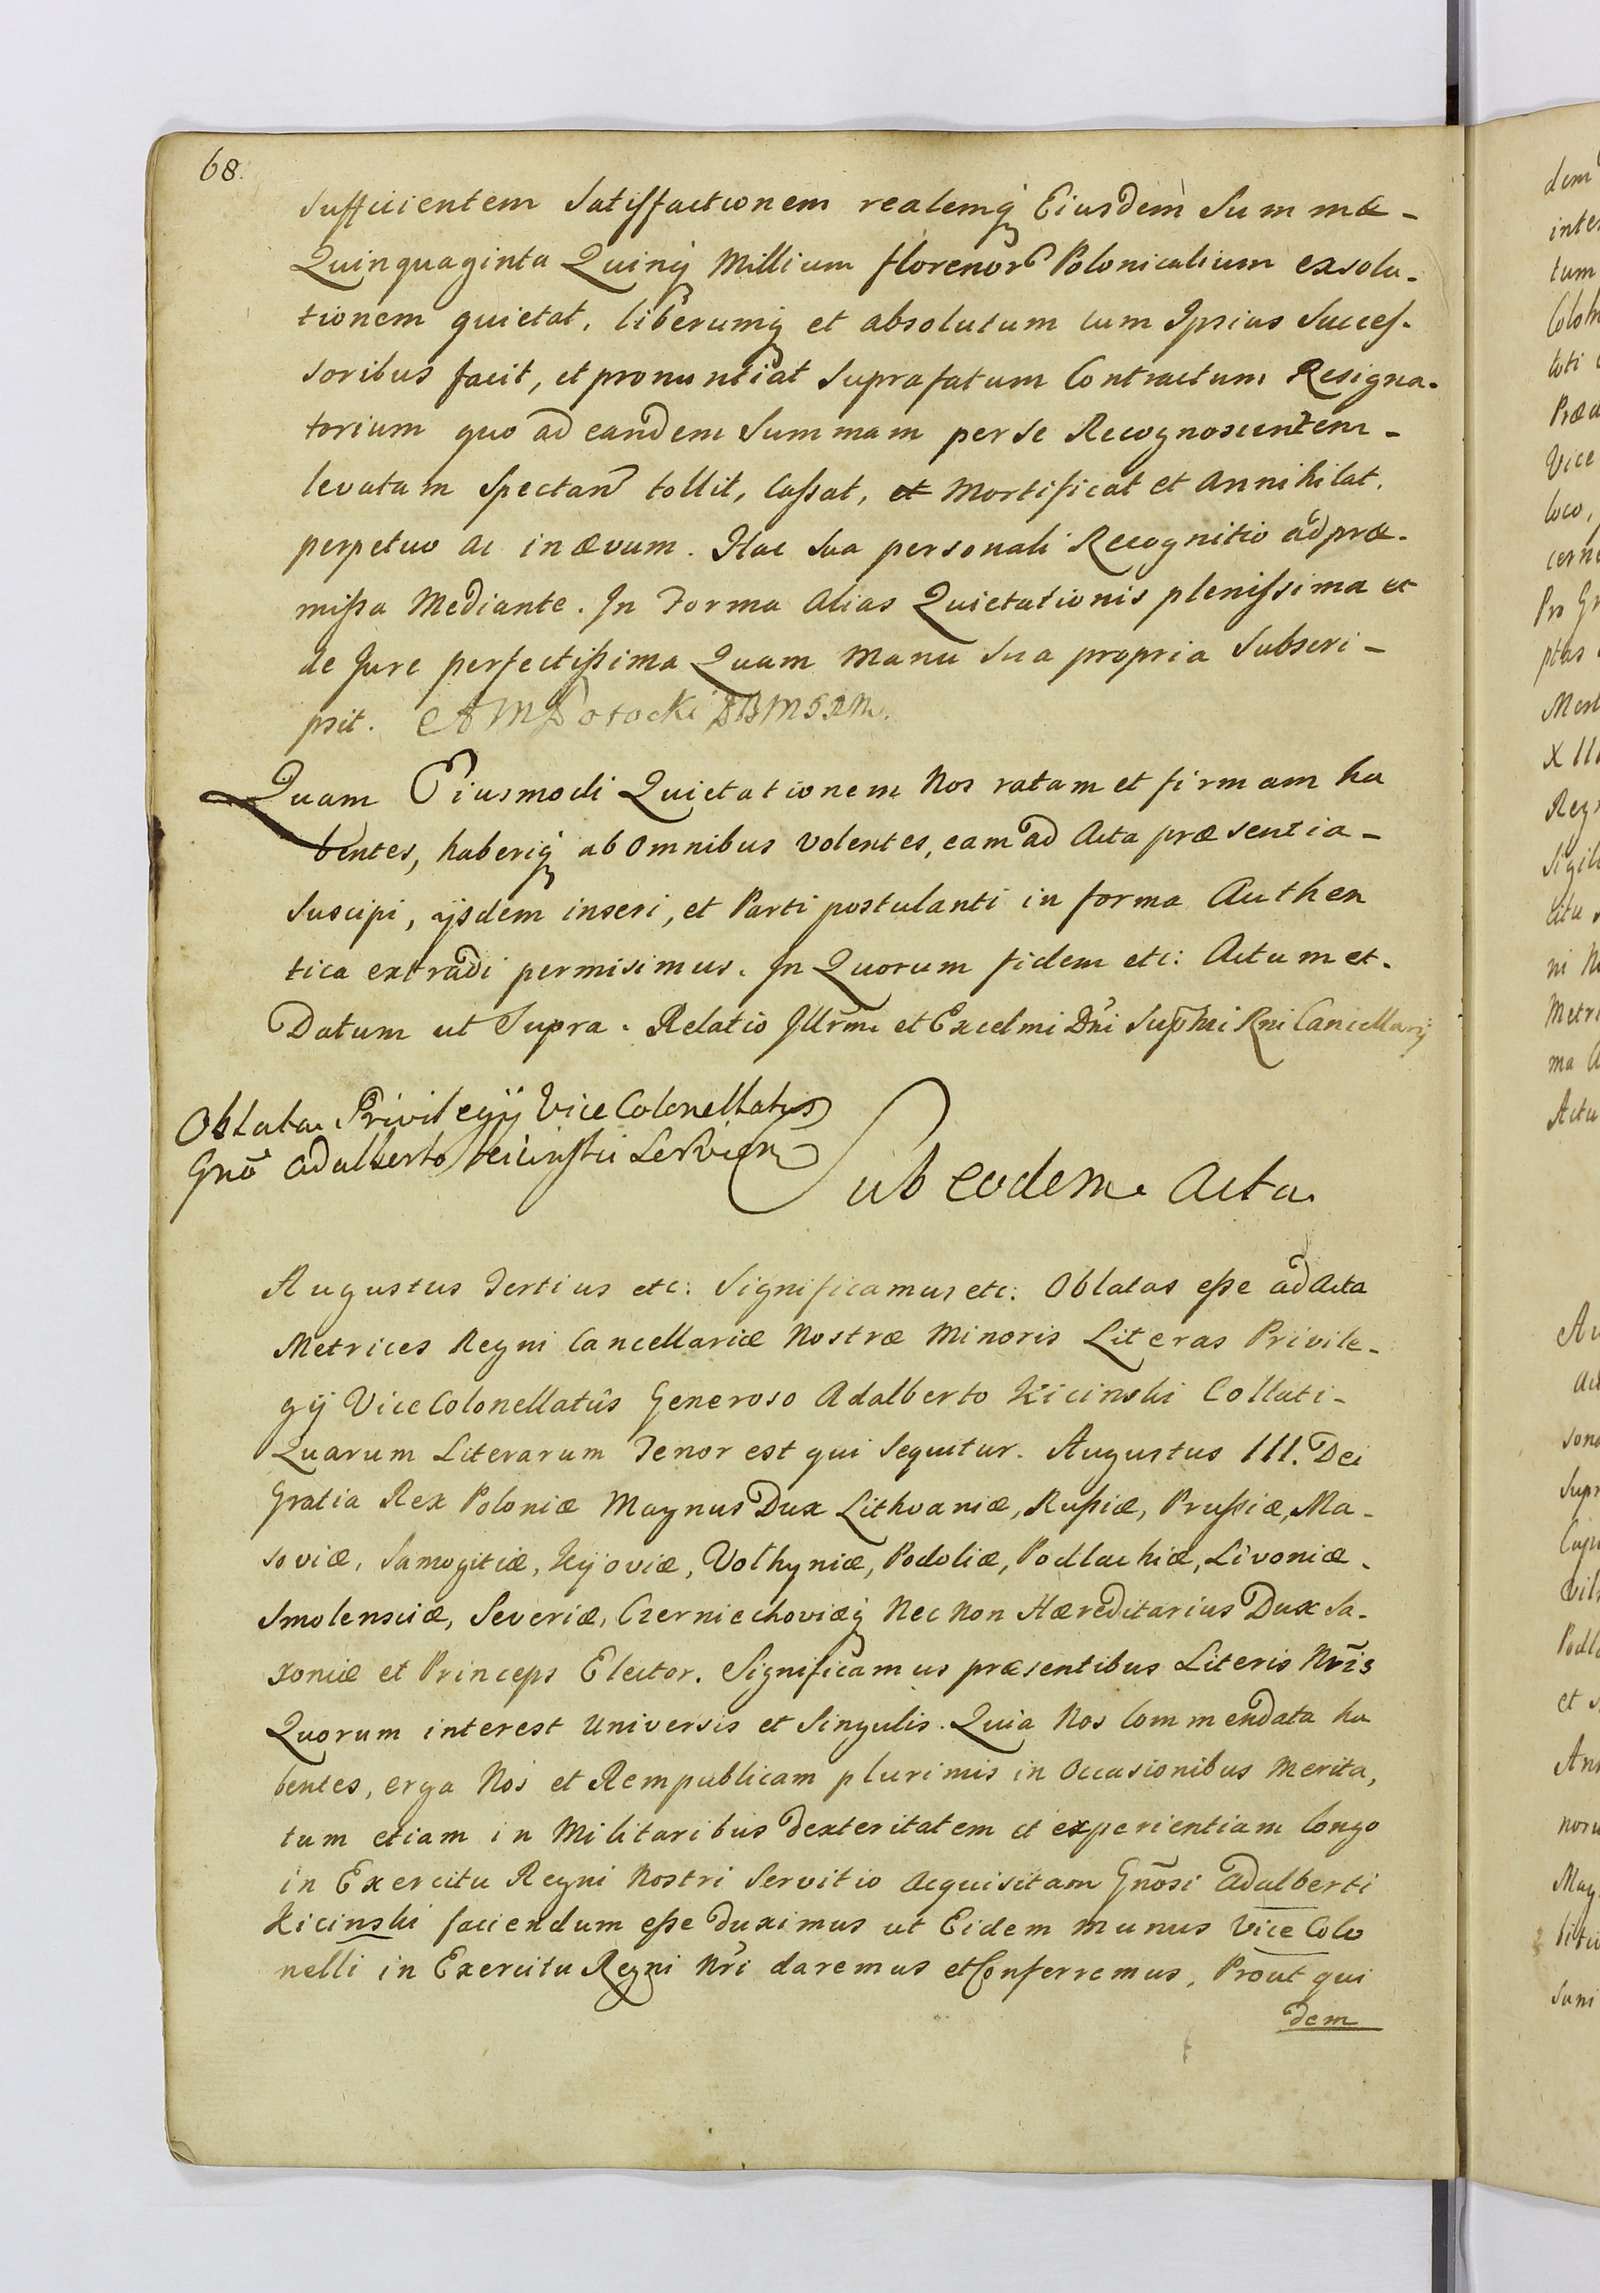 68.
sufficientem Satisfactionem realemq Eiusdem Summæ -
Quinquaginta Quinq Millium florenor Polonicalium exsolu-
tionem quietat, liberumq et absolutum cum Ipsius Succes-
soribus facit, et pronuntiat Suprafatum Contractum Resigna-
torium quo ad eandem Summam per se Recognoscentem -
levatam Spectan tollit, Cassat, et Mortificat et Annihilat.
perpetuo ac in ævum. Hac sua personali Recognitio ad præ-
missa Mediante. In Forma Alias Quietationis plenissima et
de Jure perfectissima Quam Manu sua propria Subscri -
psit. AMPotocki
Quam Eiusmodi Quietationem Nos ratam et firmam ha
bentes, haberiq ab omnibus volentes, eam ad Acta præsentia -
suscipi, ijsdem inseri, et Parti postulanti in forma Authen
tica extradi permisimus. In Quorum fidem etc: Actum et.
Datum ut Supra. Relatio Illrmi et Excelmi Dni Suphmi Rni Cancellarij
Oblata Privilegij Vice Colonellatus
Gnō Adalberto Kicinski
Sub eodem Acta
Augustus Tertius etc: Significamus etc: Oblatas esse ad Acta
Metrices Regni Cancellariæ Nostræ Minoris Literas Privile-
gij Vice Colonellatûs Generoso Adalberto Kicinski Collati -
Quarum Literarum Tenor est qui sequitur. Augustus III. Dei
Gratia Rex Poloniæ Magnus Dux Lithvaniæ, Russiæ, Prussiæ, Ma-
soviæ, Samogitiæ, Kijoviæ, Volhyniæ, Podoliæ, Podlachiæ, Livoniæ.
Smolensciæ, Severiæ, Czerniechoviæq Nec Non Hæreditarius Dux Sa-
xoniæ et Princeps Elector. Significamus præsentibus Literis Nr̄is
Quorum interest Universis et Singulis. Quia Nos Commendata ha
bentes, erga Nos et Rempublicam plurimis in Occasionibus Merita,
tum etiam in Militaribus dexteritatem et experientiam longo
in Exercitu Regni Nostri Servitio Acquisitam Gn̄osi Adalberti
Kicinski faciendum esse duximus ut Eidem munus Vice Colo
nelli in Exercitu Regni Nri daremus et Conferremus, Prout qui
dem